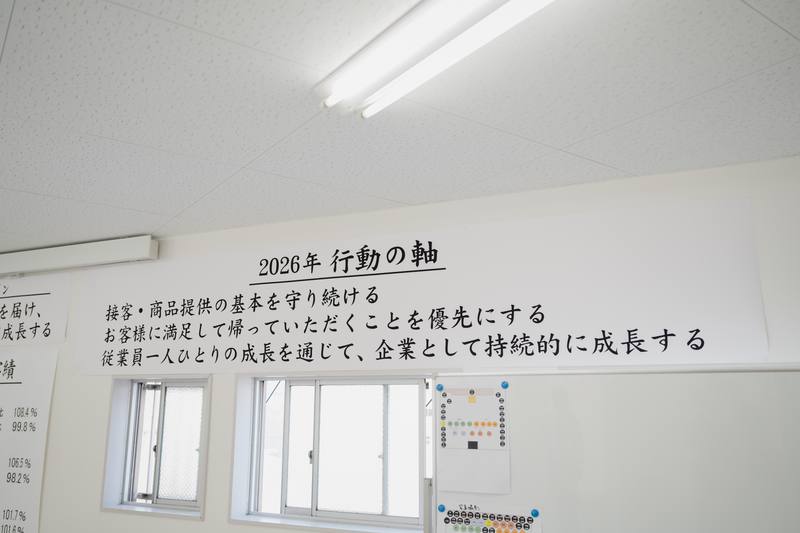 2026年 行動の軸
接客・商品提供の基本を守り続ける
お客様に満足して帰っていただくことを優先にする
従業員一人ひとりの成長を通じて、企業として持続的に成長する
ン
を届け、
成長する
績
比 108.4%
比 99.8%
106.5%
98.2%
101.7%
101.6%